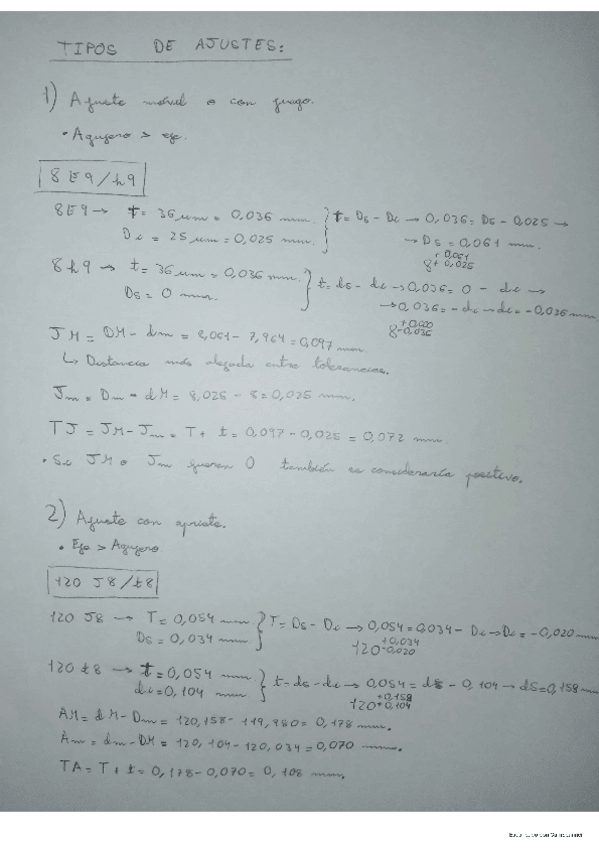 TIPOS DE AJUSTES:
1) Ajuste móvil o con juego.
• Agujero > eje.
8 E9/h9
8E9 → t = 36 µm = 0,036 mm. } t = Ds - Di → 0,036 = Ds - 0,025 →
Di = 25 µm = 0,025 mm. → Ds = 0,061 mm.
8 +0,061 +0,025
8 h9 → t = 36 µm = 0,036 mm. } t = ds - di → 0,036 = 0 - di →
Ds = 0 mm. → 0,036 = -di → di = -0,036 mm
8 +0,000 -0,036
JM = DM - dm = 8,061 - 7,964 = 0,097 mm
↳ Distancia más alejada entre tolerancias.
Jm = Dm - dM = 8,025 - 8 = 0,025 mm.
TJ = JM - Jm = T + t = 0,097 - 0,025 = 0,072 mm.
• Si JM o Jm fueran 0 también se consideraría positivo.
2) Ajuste con apriete.
• Eje > Agujero
120 J8/t8
120 J8 → T = 0,054 mm } T = Ds - Di → 0,054 = 0,034 - Di → Di = -0,020 mm
Ds = 0,034 mm.
120 +0,034 -0,020
120 t8 → t = 0,054 mm } t = ds - di → 0,054 = dS - 0,104 → dS = 0,158 mm
di = 0,104 mm.
120 +0,158 +0,104
AM = dM - Dm = 120,158 - 119,980 = 0,178 mm.
Am = dm - DM = 120,104 - 120,034 = 0,070 mm.
TA = T + t = 0,178 - 0,070 = 0,108 mm.